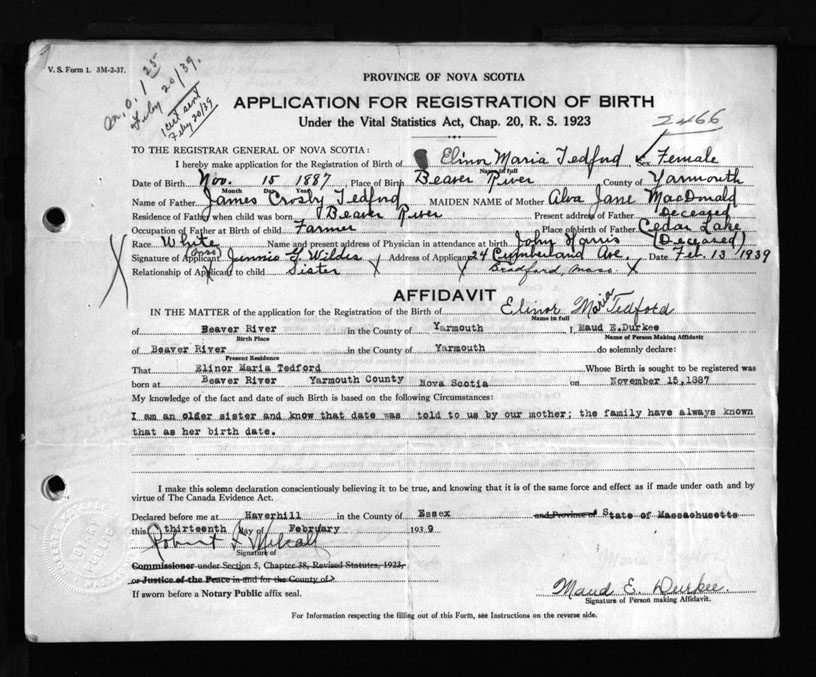 V. S. Form 1. 3M-2-37.
PROVINCE OF NOVA SCOTIA
APPLICATION FOR REGISTRATION OF BIRTH
Under the Vital Statistics Act, Chap. 20, R. S. 1923
2466
1 cert sent
Feby 20/39
Feby 20/39.
TO THE REGISTRAR GENERAL OF NOVA SCOTIA:
I hereby make application for the Registration of Birth of Elinor Maria Tedford Sex Female
Name in full
Date of Birth Nov. 15 1887 Place of Birth Beaver River County of Yarmouth
Month Day Year
Name of Father James Crosby Tedford MAIDEN NAME of Mother Alva Jane MacDonald
Residence of Father when child was born Beaver River Present address of Father Deceased
Occupation of Father at Birth of child Farmer Place of birth of Father Cedar Lake
Race White Name and present address of Physician in attendance at birth John Harris (Deceased)
Signature of Applicant Jennie G. Wildes Address of Applicant 24 Cumberland Ave. Date Feb. 13 1939
Relationship of Applicant to child Sister Bradford, Mass.
AFFIDAVIT
IN THE MATTER of the application for the Registration of the Birth of Elinor Maria Tedford
Name in full
of Beaver River in the County of Yarmouth I Maud E. Durkee
Birth Place Name of Person Making Affidavit
of Beaver River in the County of Yarmouth do solemnly declare:
Present Residence
That Elinor Maria Tedford Whose Birth is sought to be registered was
born at Beaver River Yarmouth County Nova Scotia on November 15,1887
My knowledge of the fact and date of such Birth is based on the following Circumstances:
I am an older sister and know that date was told to us by our mother; the family have always known
that as her birth date.
I make this solemn declaration conscientiously believing it to be true, and knowing that it is of the same force and effect as if made under oath and by
virtue of The Canada Evidence Act.
Declared before me at Haverhill in the County of Essex and Province of State of Massachusetts
this thirteenth day of February 1939
Signature of
Commissioner under Section 5, Chapter 38, Revised Statutes, 1923,
or Justice of the Peace in and for the County of
If sworn before a Notary Public affix seal.
Maud E. Durkee.
Signature of Person making Affidavit.
For Information respecting the filling out of this Form, see Instructions on the reverse side.